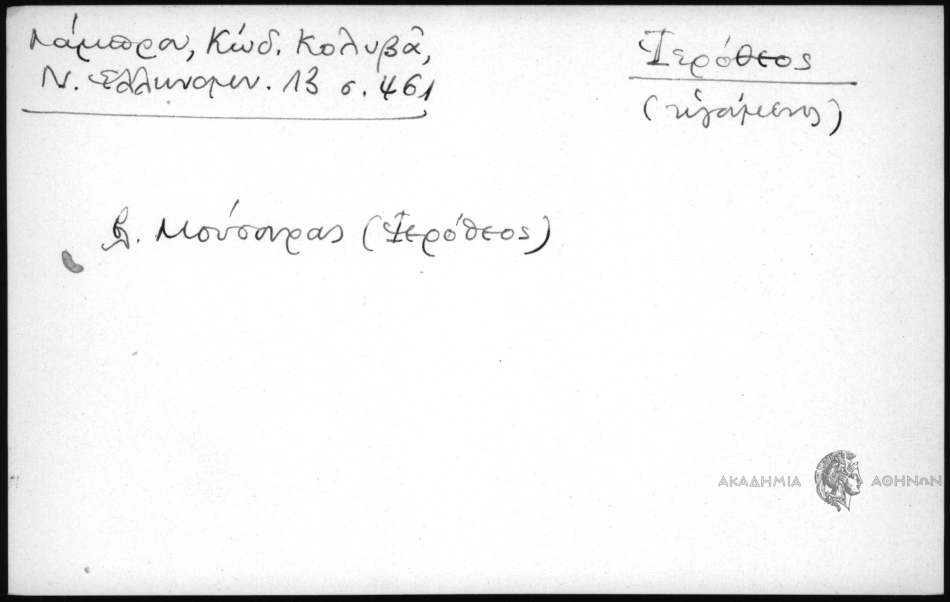 Λάμπρου, Κώδ. Κολυβᾶ,
Ν. Ἑλληνομν. 13 σ. 461
Ἱερόθεος
(ἡγούμενος)
β. Μούσουρας (Ἱερόθεος)
ΑΚΑΔΗΜΙΑ ΑΘΗΝΩΝ